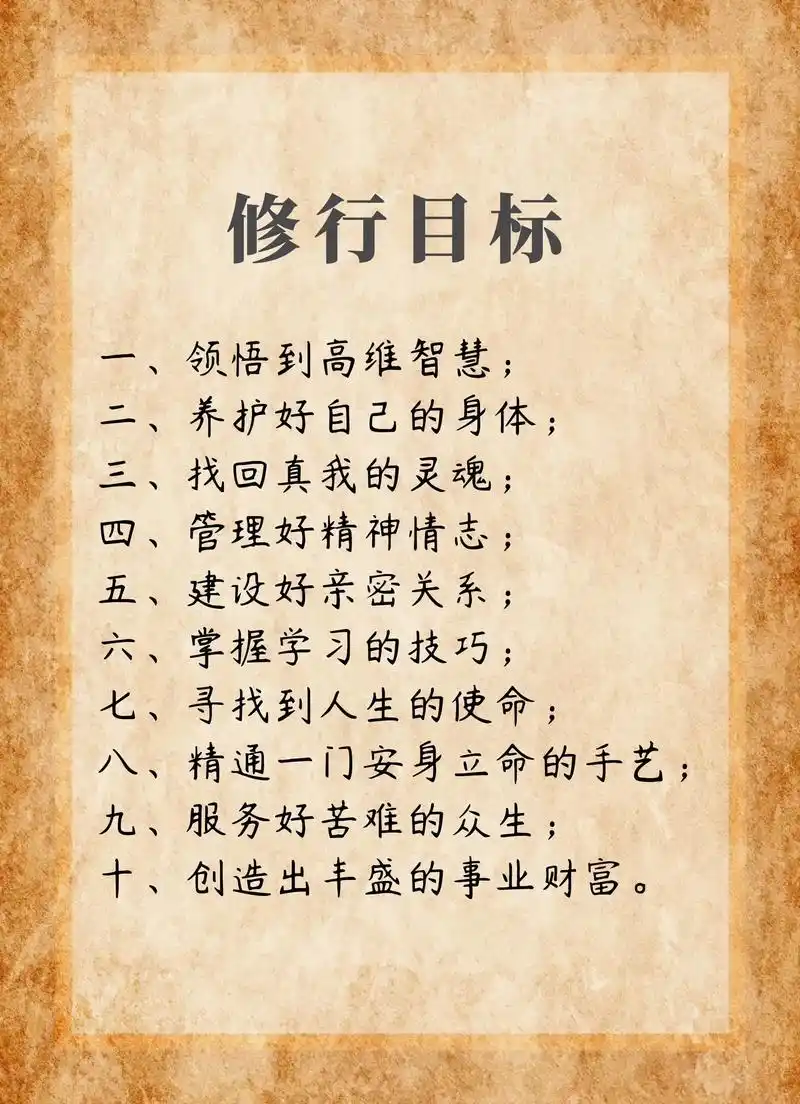 修行目标
一、领悟到高维智慧；
二、养护好自己的身体；
三、找回真我的灵魂；
四、管理好精神情志；
五、建设好亲密关系；
六、掌握学习的技巧；
七、寻找到人生的使命；
八、精通一门安身立命的手艺；
九、服务好苦难的众生；
十、创造出丰盛的事业财富。